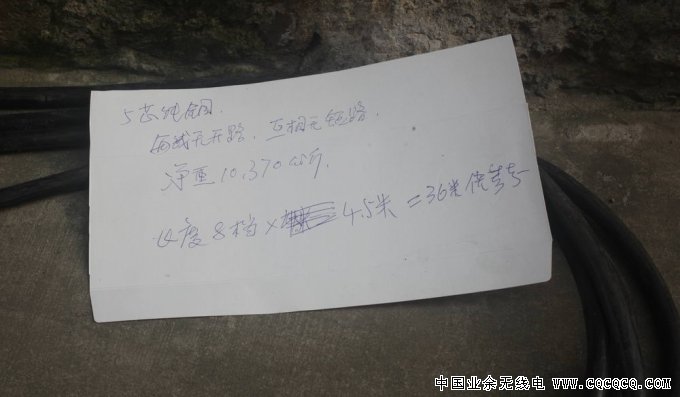 5芯纯铜.
每线无开路,互相无短路.
净重10.370公斤.
长度8档× 4.5米=36米
中国业余无线电 www.CQCQCQ.com